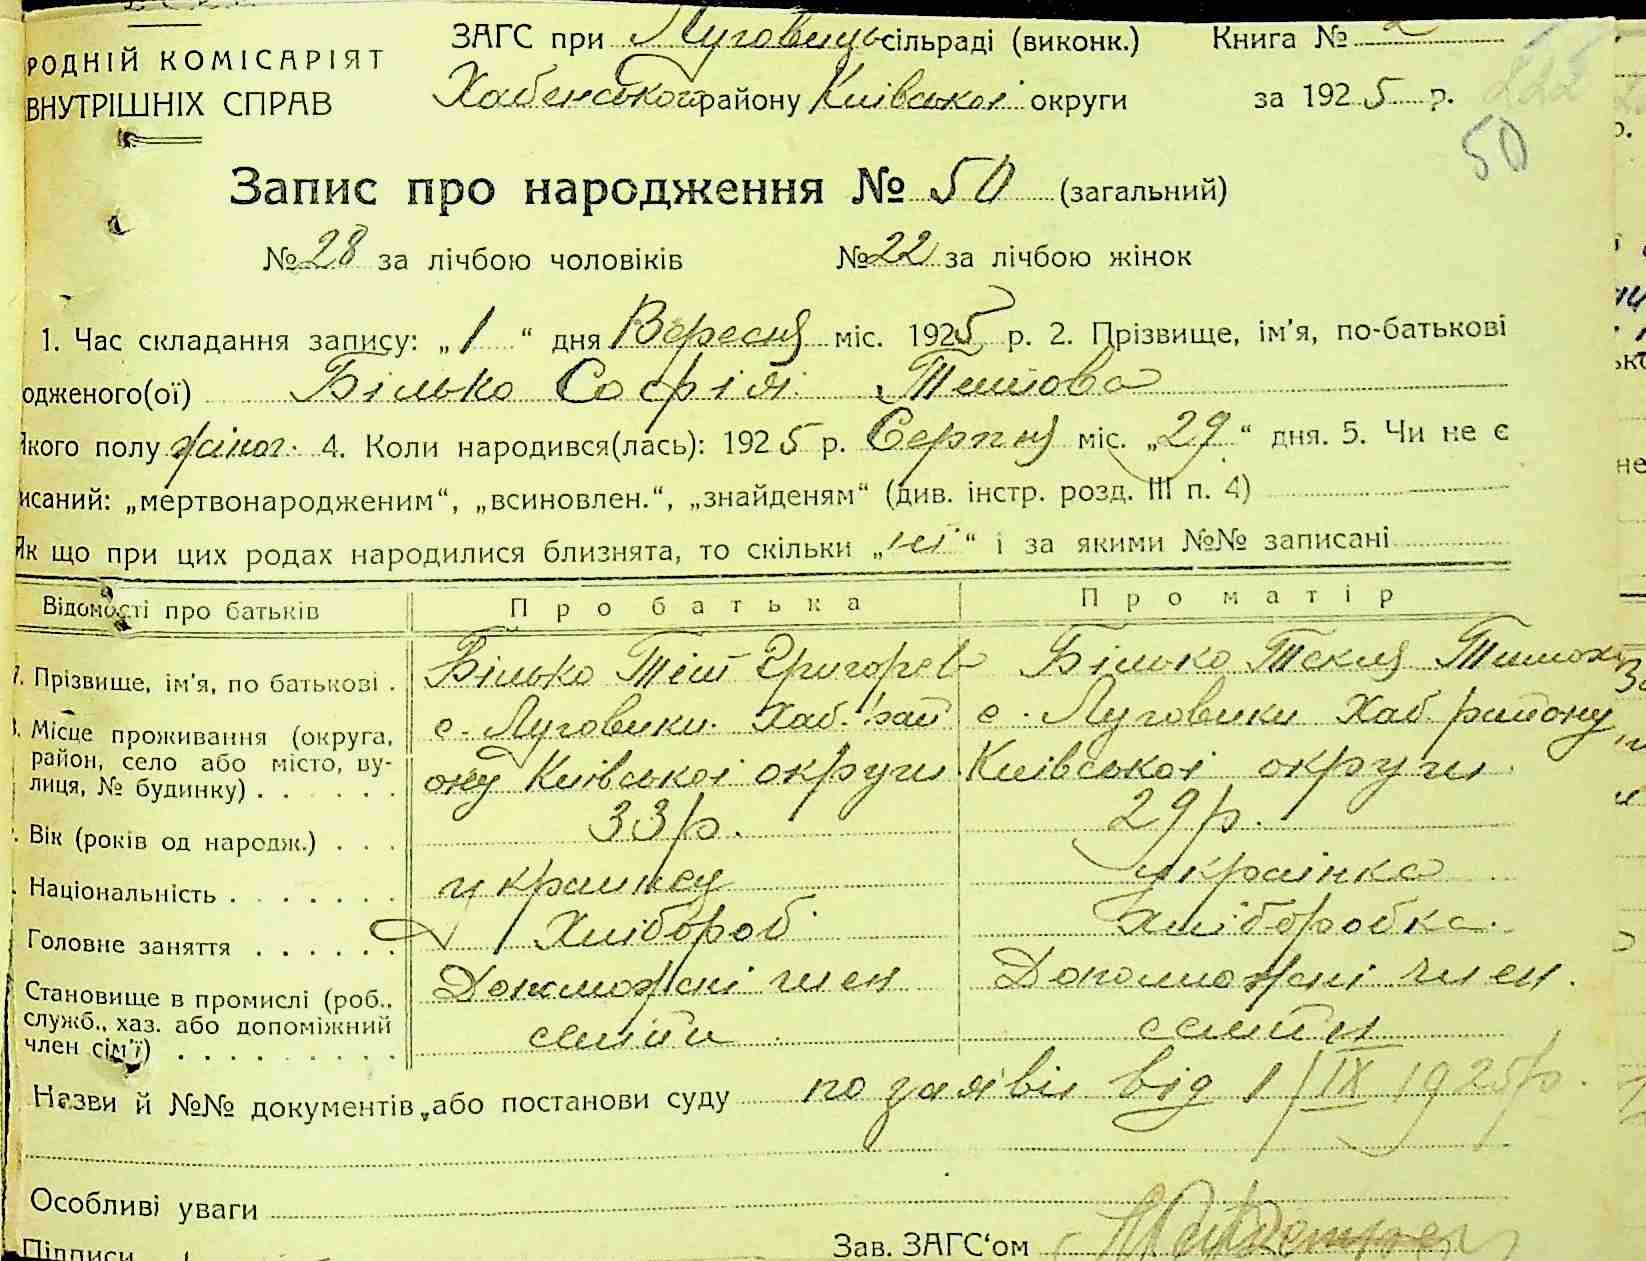 РОДНІЙ КОМІСАРІЯТ
ВНУТРІШНІХ СПРАВ
ЗАГС при Луговиць сільраді (виконк.) Книга № 2
Хабенського району Київської округи за 1925 р.
50
Запис про народження № 50 (загальний)
№ 28 за лічбою чоловіків № 22 за лічбою жінок
1. Час складання запису: „1“ дня Вересня міс. 1925 р. 2. Прізвище, ім'я, по-батькові
одженого(ої) Білько Софія Титова
якого полу жіноч. 4. Коли народився(лась): 1925 р. Серпня міс. „29“ дня. 5. Чи не є
исаний: „мертвонародженим“, „всиновлен.“, „знайденям“ (див. інстр. розд. III п. 4)
Як що при цих родах народилися близнята, то скільки „ні“ і за якими №№ записані
Відомості про батьків Про батька Про матір
7. Прізвище, ім'я, по батькові . Білько Тіт Григоров Білько Текля Тимох
8. Місце проживання (округа, район, село або місто, вулиця, № будинку) . . . . . . с. Луговики. Хаб. район с. Луговики Хаб. району
ону Київської округи. Київської округи.
Вік (років од народж.) . . . 33 р. 29 р.
Національність . . . . . . . українец українка
Головне заняття . . . . . . Хлібороб. Хліборобка.
Становище в промислі (роб., служб., хаз. або допоміжний член сім'ї) . . . . . . . . . Допоможні член Допоможні член.
семїи семїи
Назви й №№ документів, або постанови суду по заявіи від 1/IX 1925 р.
Особливі уваги
Підписи
Зав. ЗАГС'ом